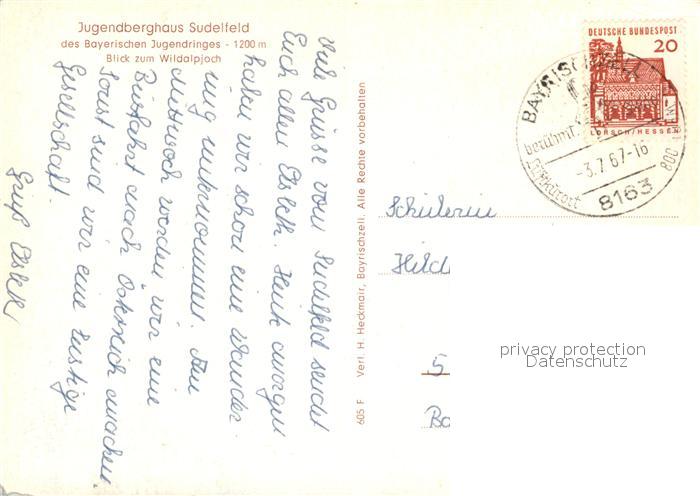 Jugendberghaus Sudelfeld
des Bayerischen Jugendringes - 1200 m
Blick zum Wildalpjoch
Viele Grüsse vom Sudelfeld sendet
Euch allen Heute morgen
haben wir schon eine Wander-
ung unternommen. Am
Mittwoch werden wir eine
Busfahrt nach Östreich machen.
Sonst sind wir eine lustige
Gesellschaft.
Gruß
605 F Verl. H. Heckmair, Bayrischzell. Alle Rechte vorbehalten
DEUTSCHE BUNDESPOST
20
LORSCH/HESSEN
BAYRISCHZELL
berühmt.
Luftkurort
-3.7.67-16
800
8163
Schülerin
Hild
5
privacy protection
Datenschutz